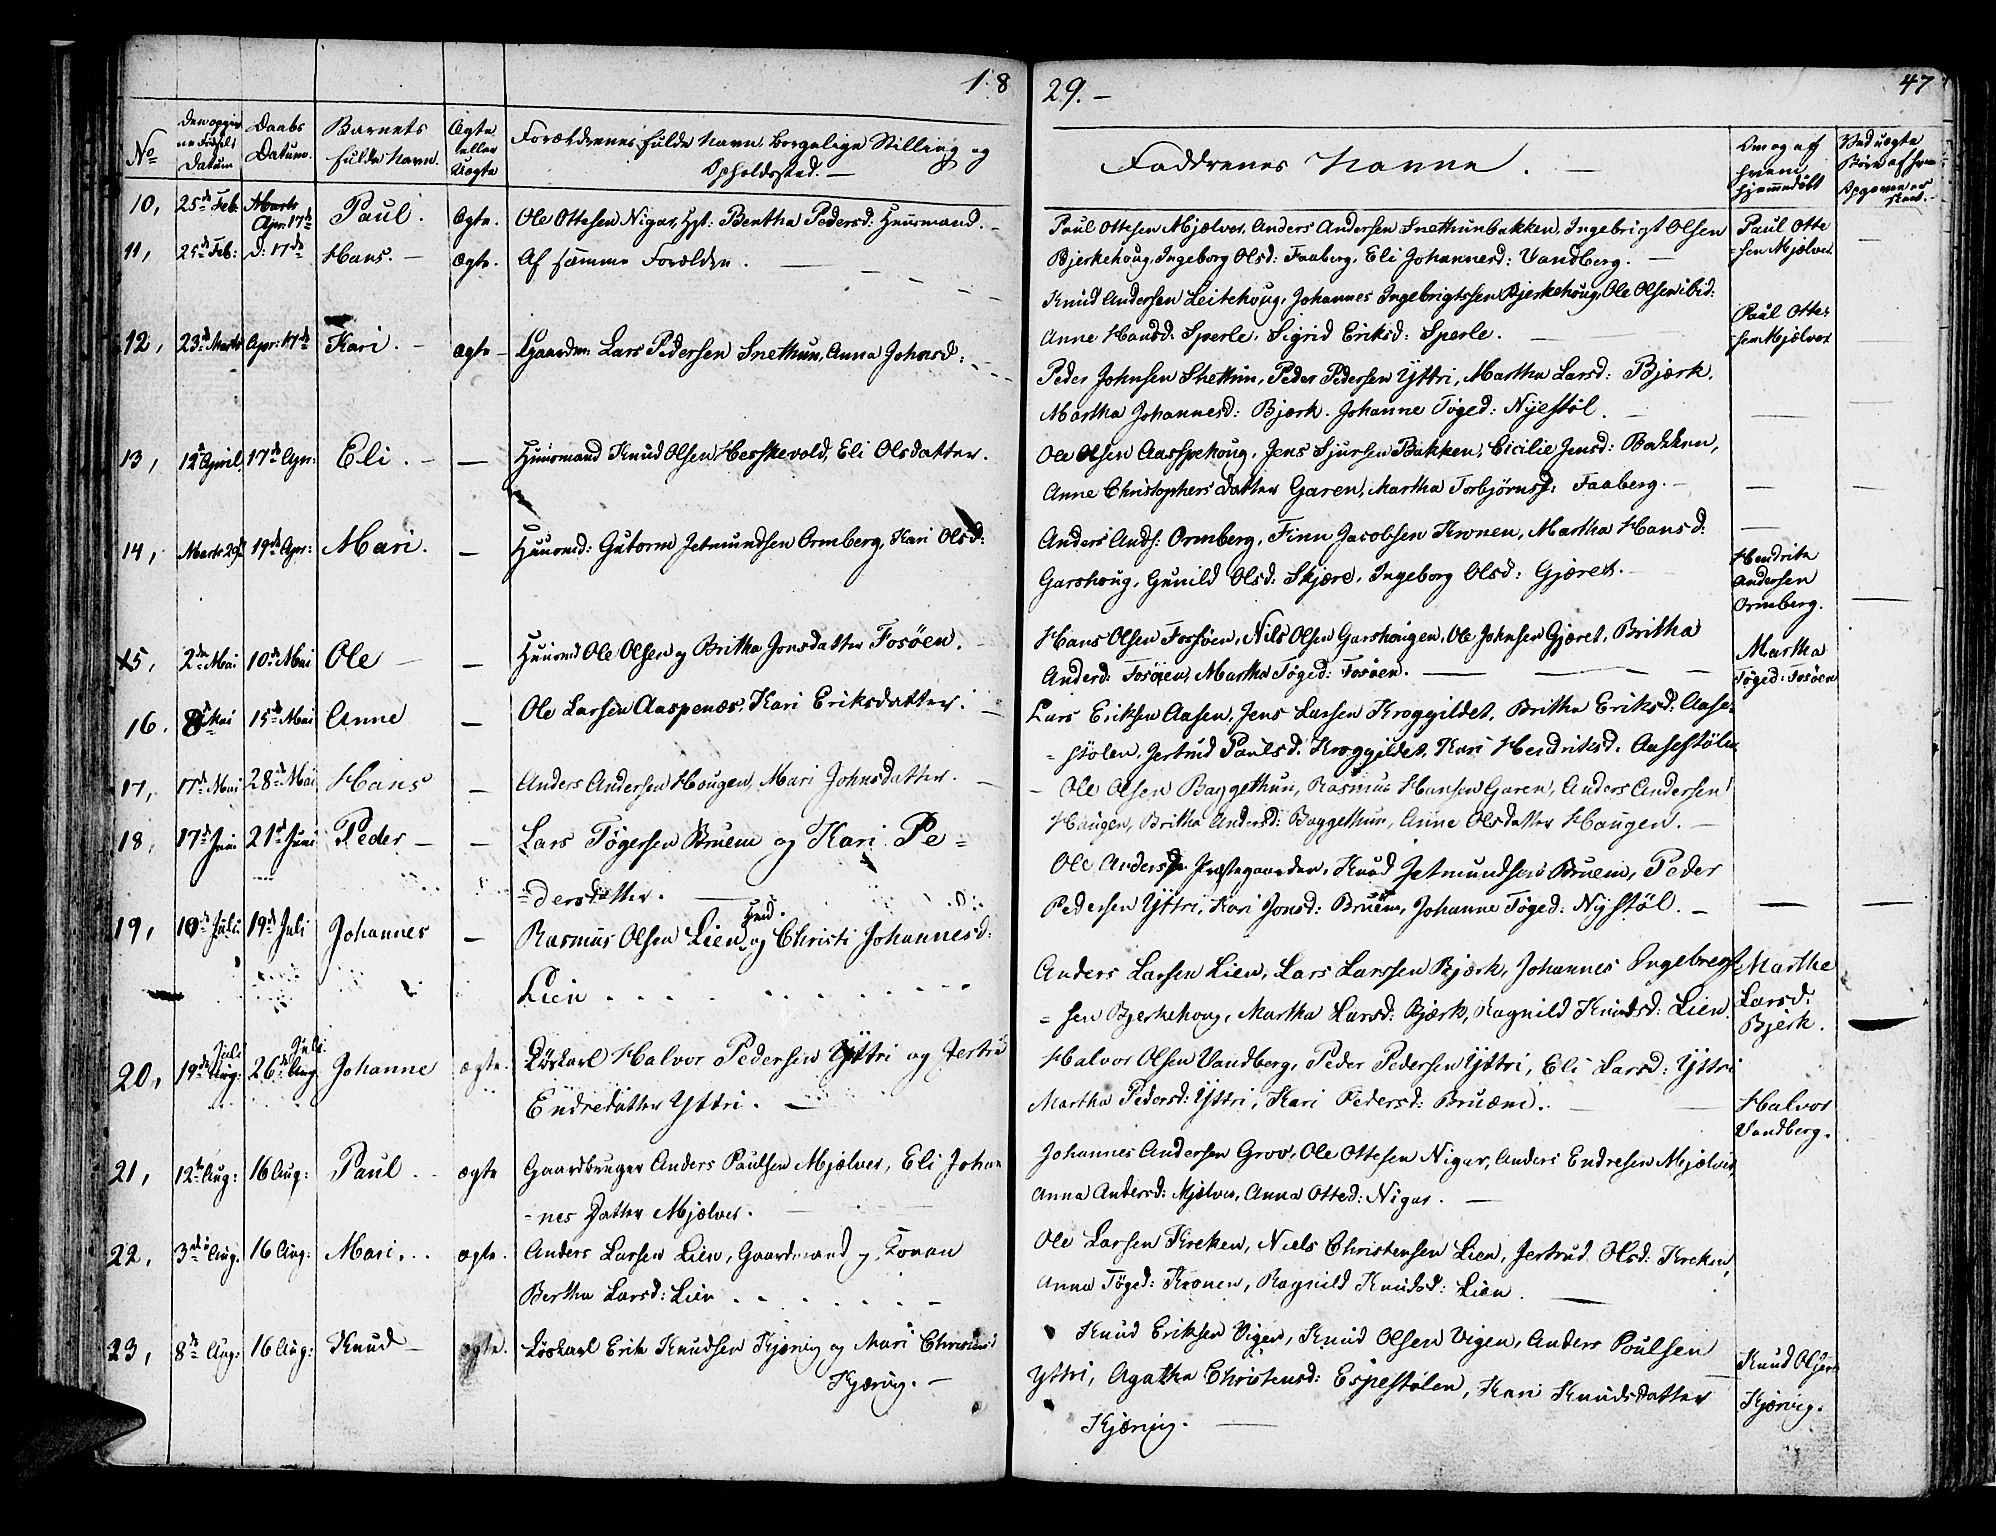 1829.-
47
No
Den opgivne Fødsels Datum
Daabs Datum.
Barnets fulde Navn.
Ægte eller Uægte
Forældrenes fulde Navn, borgelige Stilling og Opholdssted. -
Faddrenes Navne. -
Om og af hvem hjemmedøbt
Ved uægte Børn af hvem
10, 25de Feb: Apr: 17de Paul. Ægte. Ole Ottesen Nigar, Hst: Benthe Pedersd: Huusmand. -
Paul Ottesen Mjelver, Anders Andersen Snethunbakken, Ingebrigt Olsen
Bjerkehoug, Ingeborg Olsd: Faaberg, Eli Johannesd: Vandberg. -
Paul Otte
=sen Mjelver
11, 25de Feb: d: 17de Hans. - Ægte. Af samme Forælden. -
Knud Andersen Leitehoug, Johannes Ingebrigtssen Bjerkehoug, Ole Olsen ibid:
Anne Hansd: Sperle, Sigrid Eriksd: Sperle.
Paul Otte=
sen Mjelver
12, 23de Marts Apr: 17de Kari. - Ægte - Gaardm: Lars Pedersen Snethun, Anna Johnsd:
Peder Johnsen Snethun, Peder Pedersen Yttri, Martha Larsd: Bjærk.
Martha Johannesd: Bjærk. Johanne Tøged: Nyestøl.
13, 12te April 17de Apr: Eli. - - Huusmand Knud Olsen Herskevold, Eli Olsdatter.
Ole Olsen Aaspehoug, Jens Sjursen Bakken, Cicilie Jensd: Bakken,
Anne Christophers Datter Garen, Martha Torbjørnsd: Faaberg. -
14, Marts 29de 19de Apr: Mari. - Huusmd: Gutorm Jetmundsen Ormberg, Kari Olsd:
Anders Ands: Ormberg, Finn Jacobsen Kronen, Martha Hansd:
Garshoug, Gunild Olsd: Skjære, Ingeborg Olsd: Gjæret. -
Hendrik
Andersen
Ormberg.
15, 2den Mai 10de Mai Ole - - Huusmd Ole Olsen og Britha Jonsdatter Fosøen.
Hans Olsen Fossøen, Nils Olsen Garshougen, Ole Johnsen Gjæret, Britha
Anderd: Fosøen, Martha Tøged: Fosøen. -
Martha
Tøged: Fosøen
16. 8de Mai 15de Mai Anne - Ole Larsen Aaspenæs, Kari Eriksdatter. -
Lars Eriksen Aasen, Jens Larsen Kroggildet, Britha Eriksd: Aase=
=stølen, Jertrud Paulsd: Kroggildet, Kari Hendriksd: Aasestølen
17, 17de Mai 28de Mai Hans - Anders Andersen Hougen, Mari Johnsdatter. -
- Ole Olsen Baggethun, Rasmus Hansen Garen, Anders Andersen
Haugen, Britha Andersd: Baggethun, Anne Olsdatter Haugen. -
18, 17de Juni 21de Juni Peder - - Lars Tøgersen Bruem og Kari Pe=
=dersdatter.
Ole Anders: Præstegaarden, Knud Jetmundsen Bruem, Peder
Pedersen Yttri, Kari Jonsd: Bruem, Johanne Tøged: Nystøl. -
19, 10de Juli 19de Juli Johannes - Rasmus Olsen Lien og Christi Johannesd:
Lien
Anders Larsen Lien, Lars Larssen Bjærk, Johannes Ingebregt
=sen Bjerkehoug, Martha Larsd: Bjærk, Ragnild Knudsd: Lien
Marthe
Larsd:
Bjerk.
20, 19de Juli Aug: 26de Juli Aug Johanne ægte. Løskarl Halvor Pedersen Yttri og Jertru
Endredatter Yttri. -
Halvor Olsen Vandberg, Peder Pedersen Yttri, Eli Larsd: Yttri
Martha Pedersd: Yttri, Kari Pedersd: Bruem.
Halvor
Vandberg.
21, 12te Aug: 16 Aug: Paul. ægte Gaardbruger Anders Paulsen Mjelver, Eli Johan
=nes Datter Mjelver.
Johannes Andersen Grov, Ole Ottesen Nigar, Anders Endresen Mjelver,
Anna Andersd: Mjelver, Anna Otted: Nigar. -
22, 3die Aug: 16 Aug: Mari. ægte. Anders Larsen Lien, Gaardmand og Konan
Bertha Larsd: Lien
Ole Larsen Kreken, Niels Christensen Lien, Jertrud Olsd: Kreken,
Anna Tøged: Kronen, Ragnild Knudsd: Lien.
23, 8de Aug: 16 Aug: Knud - ægte. Løskarl Erik Knudsen Kjørvig og Mari Christensd
Kjærvig. -
Knud Eriksen Vigen, Knud Olsen Vigen, Anders Poulsen
Yttri, Agatha Christensd: Espestølen, Kari Knudsdatter
Kjørvig. -
Knud Olsen
Kjørvig.